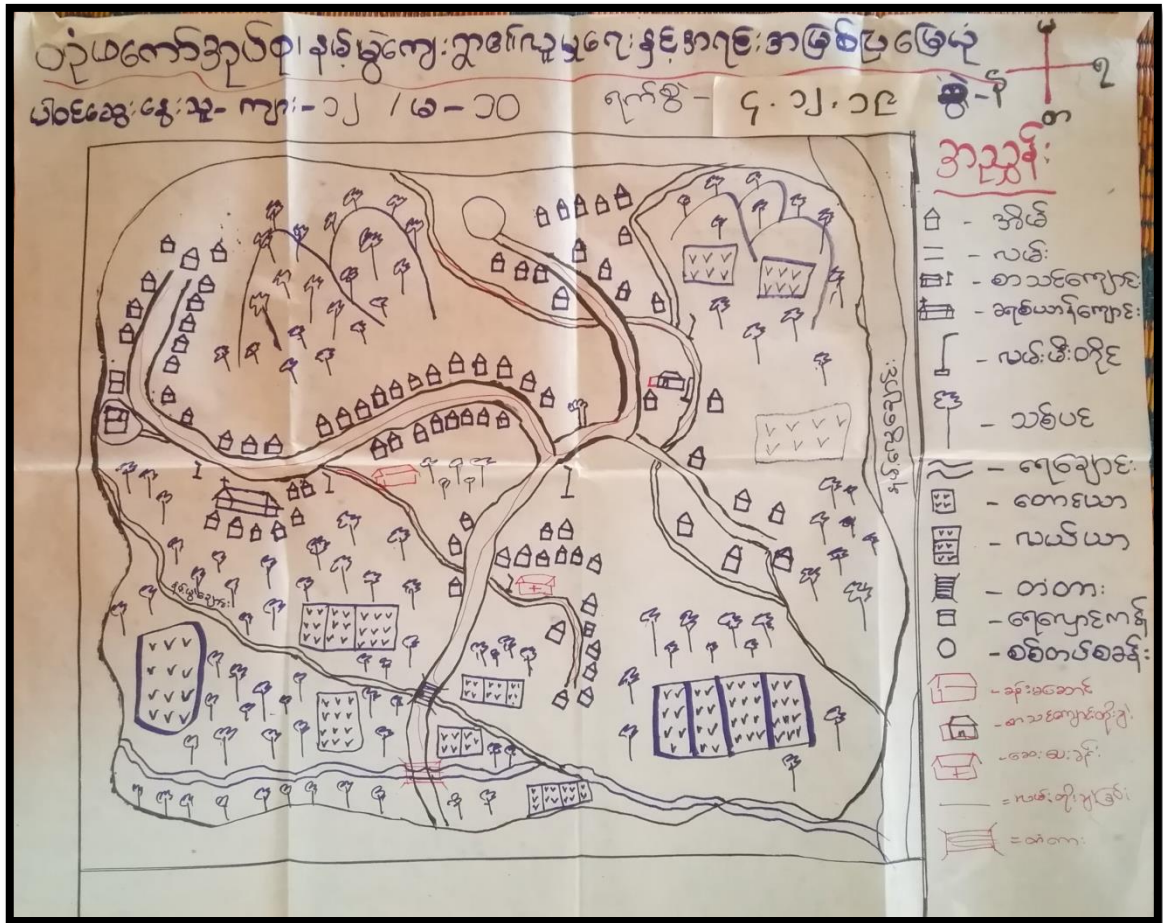 ပုံဖကော်အုပ်စု၊ နမ့်မွဲကျေးရွာ၏လူမှုရေးနှင့်အရင်းအမြစ်ပြမြေပုံ
ပါဝင်ဆွေးနွေးသူ- ကျား-၁၂ / မ-၁၀ ရက်စွဲ- ၄.၁၂.၁၉
အညွှန်း
- အိမ်
- လမ်း
- စာသင်ကျောင်း
- ခရစ်ယာန်ကျောင်း
- လမ်းမီးတိုင်
- သစ်ပင်
- ရေချောင်း
- တောင်ယာ
- လယ်ယာ
- တံတား
- ရေလှောင်ကန်
- စစ်တပ်စခန်း
- ခန်းမဆောင်
- စာသင်ကျောင်းတိုးချဲ့
- ဆေးပေးခန်း
= လမ်းတိုးချဲ့ခြင်း
= တံတား
နမ့်မွဲချောင်း